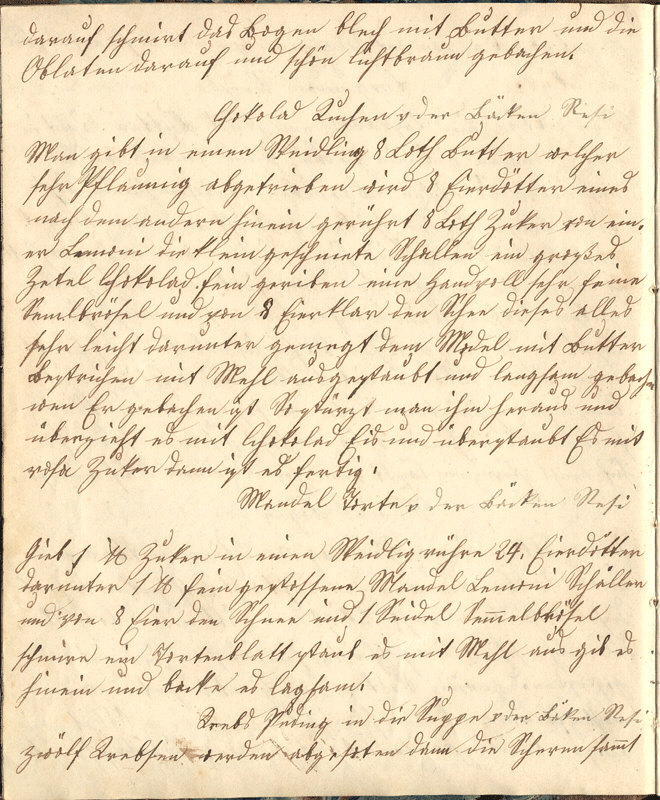 darauf schmirt das Bogen blech mit Butter und die
Oblaten darauf und schön lichtbraun gebachen.
Chokolad Kuchen v der Bäcken Resi
Man gibt in einen Weidling 8 Loth Butter welcher
sehr Pflaumig abgetrieben wird 8 Eierdötter eines
nach dem andern hinein gerührt 8 Loth Zuker von ein.
er Lemoni die klein geschniete Schallen ein großes
Zetel Chokolad fein geriben eine Handvoll sehr feine
Semlbrösel und von 8 Eierklar den Schnee dieses alles
sehr leicht darunter gemegt dem Model mit Butter
Bestrichen mit Mehl ausgestaubt und langsam gebachen
wen Er gebachen ist Sostürzt man ihm heraus und
überzieht es mit Chokolad Eis und überstaubt Es mit
rosa Zuker dann ist es fertig.
Mandel Torte v der Bäcken Resi
Gieb 1 ℔ Zuker in einen Weidlig rühre 24. Eierdötter
darunter 1 ℔ fein gestossene Mandel Lemoni Schäller
und von 8 Eier den Schnee und 1 Seidel Semmelbrösel
schmire ein Tortenblatt staub es mit Mehl aus gib es
hinein und backe es lagsam.
Krebs Puding in die Suppe v der Bäken Resi
Zwölf Krebsen werden abgesoten dann die Scheren sammt